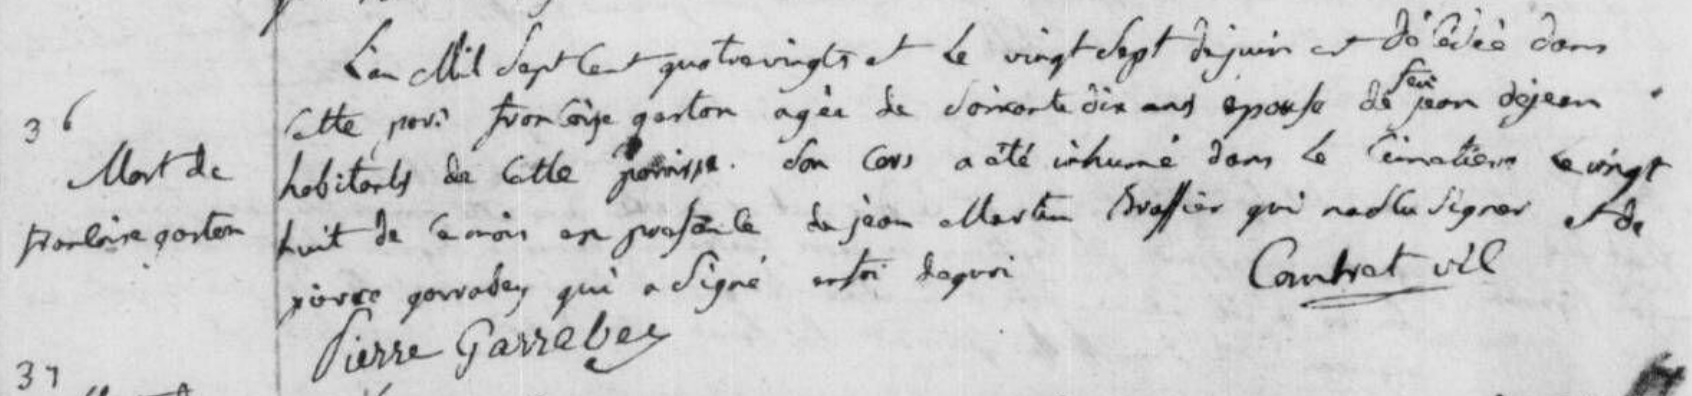 L'an Mil Sept Cent quatrevingts et le vingt Sept de juin est décédée dans
36
Cette paroi francoise garton agée de Soixante dix ans epouse de feu jean dejean
Mort de
habitants de Cette paroisse. Son Cors a été inhumé dans le Cimetiere le vingt
francoise garton
huit de ce mois en presence de jean Martin Brassier qui na Sçu Signer et de
pierre garrabey qui a Signé enfoi dequoi
Combret vic
Pierre Garrabey
37